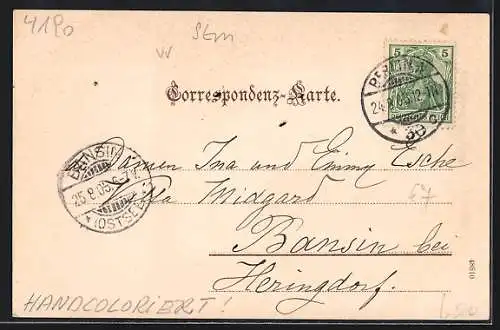 4190
Stm
W
Correspondenz-Karte.
5
BERLIN
24.8.05.12-1N.
* 39
BANSIN
25.8.05.6-7V.
* (OSTSEE)
Damen Ina und Emmy Esche
Villa Midgard
Bansin bei
Heringdorf.
HANDCOLORIERT!
48510